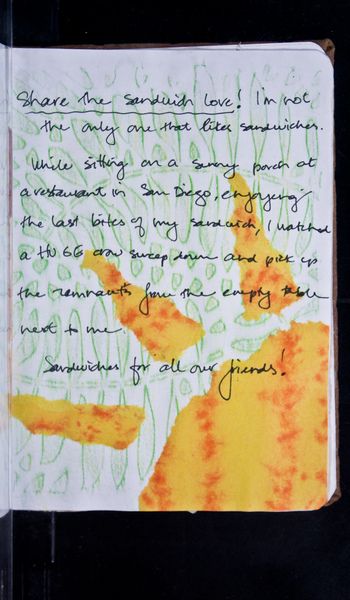 Share the sandwich love! I'm not
the only one that likes sandwiches.
While sitting on a sunny porch at
a restaurant in San Diego, enjoying
the last bites of my sandwich, I watched
a HUGE crow swoop down and pick up
the remnants from the empty table
next to me.
Sandwiches for all our friends!